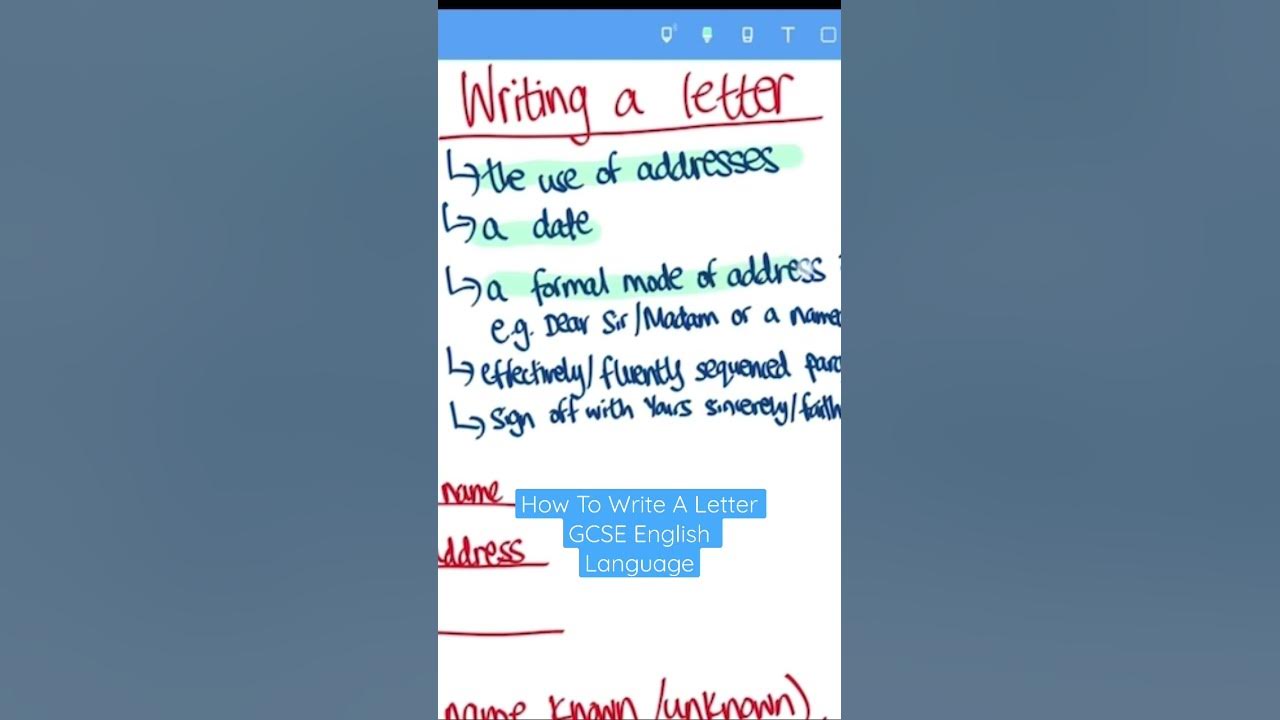 Writing a letter
↳ the use of addresses
↳ a date
↳ a formal mode of address
e.g. Dear Sir/Madam or a named
↳ effectively/fluently sequenced
↳ sign off with Yours sincerely/
name
address
How To Write A Letter
GCSE English
Language
name known/unknown)